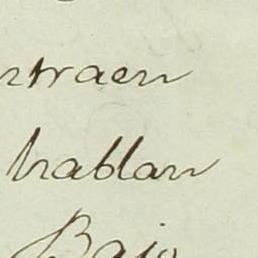 ntraen
hablan
Bajo